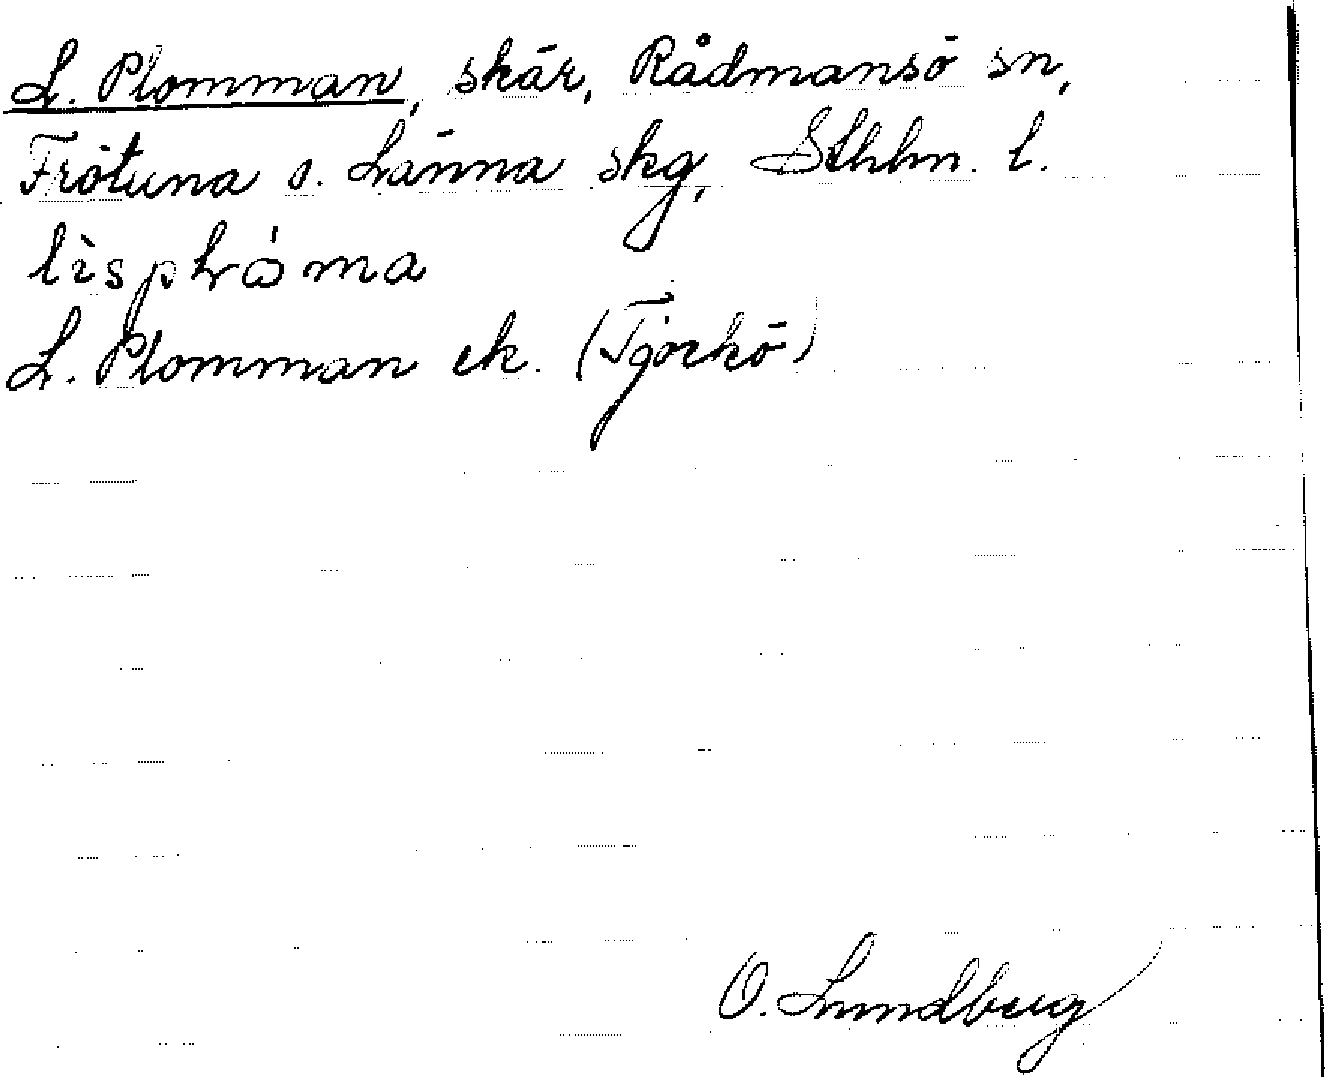 L. Plomman, skär, Rådmansö sn,
Frötuna o. Länna skg, Sthlm. l.
L. Plomman ek. (Tjockö)
O. Lundberg